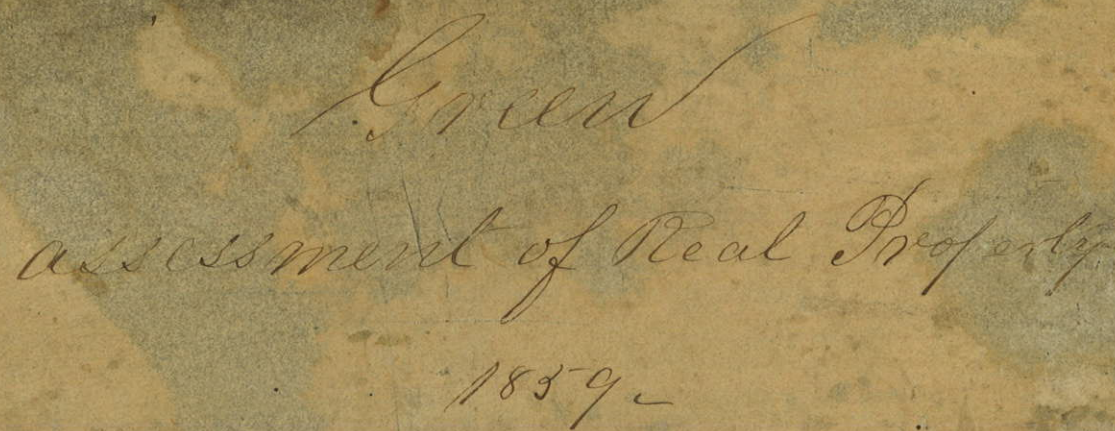 Green
assessment of Real Property
1859.